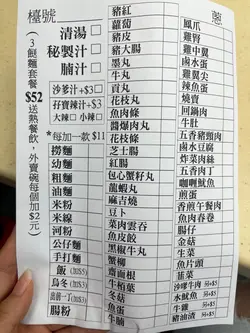 檯號
蔥
清湯
秘製汁
腩汁
沙爹汁+$3
孖寶辣汁+$3
大辣 小辣
*每加一款 $11
(3餸麵套餐 $52 送熱餐飲，外賣碗每個加$2元)
撈麵
幼麵
粗麵
油麵
米粉
米線
河粉
公仔麵
手打麵
飯 (加$5)
烏冬 (加$3)
出前一丁(加$3)
腸粉
豬紅
蘿蔔
豬皮
豬大腸
墨丸
牛丸
貢丸
花枝丸
魚肉條
醬爆肉丸
花枝丸
芝士腸
紅腸
包心蟹籽丸
龍蝦丸
麻吉燒
豆卜
菜肉雲吞
魚皮餃
黑椒牛丸
蟹柳
齋面根
牛栢葉
冬菇
魚蛋
牛腩
鳳爪
雞腎
雞中翼
鹵水蛋
雞翼尖
辣魚蛋
燒賣
回鍋肉
牛肚
五香豬頸肉
鹵水豆腐
炸菜肉絲
五香肉丁
咖喱魷魚
煎蛋
香煎午餐肉
魚肉春卷
腸仔
金菇
生菜
魚片頭
韮菜
沙嗲牛肉 $6+$5
水魷魚 $6+$5
牛雜 $6+$5
豬油渣 $6+$5